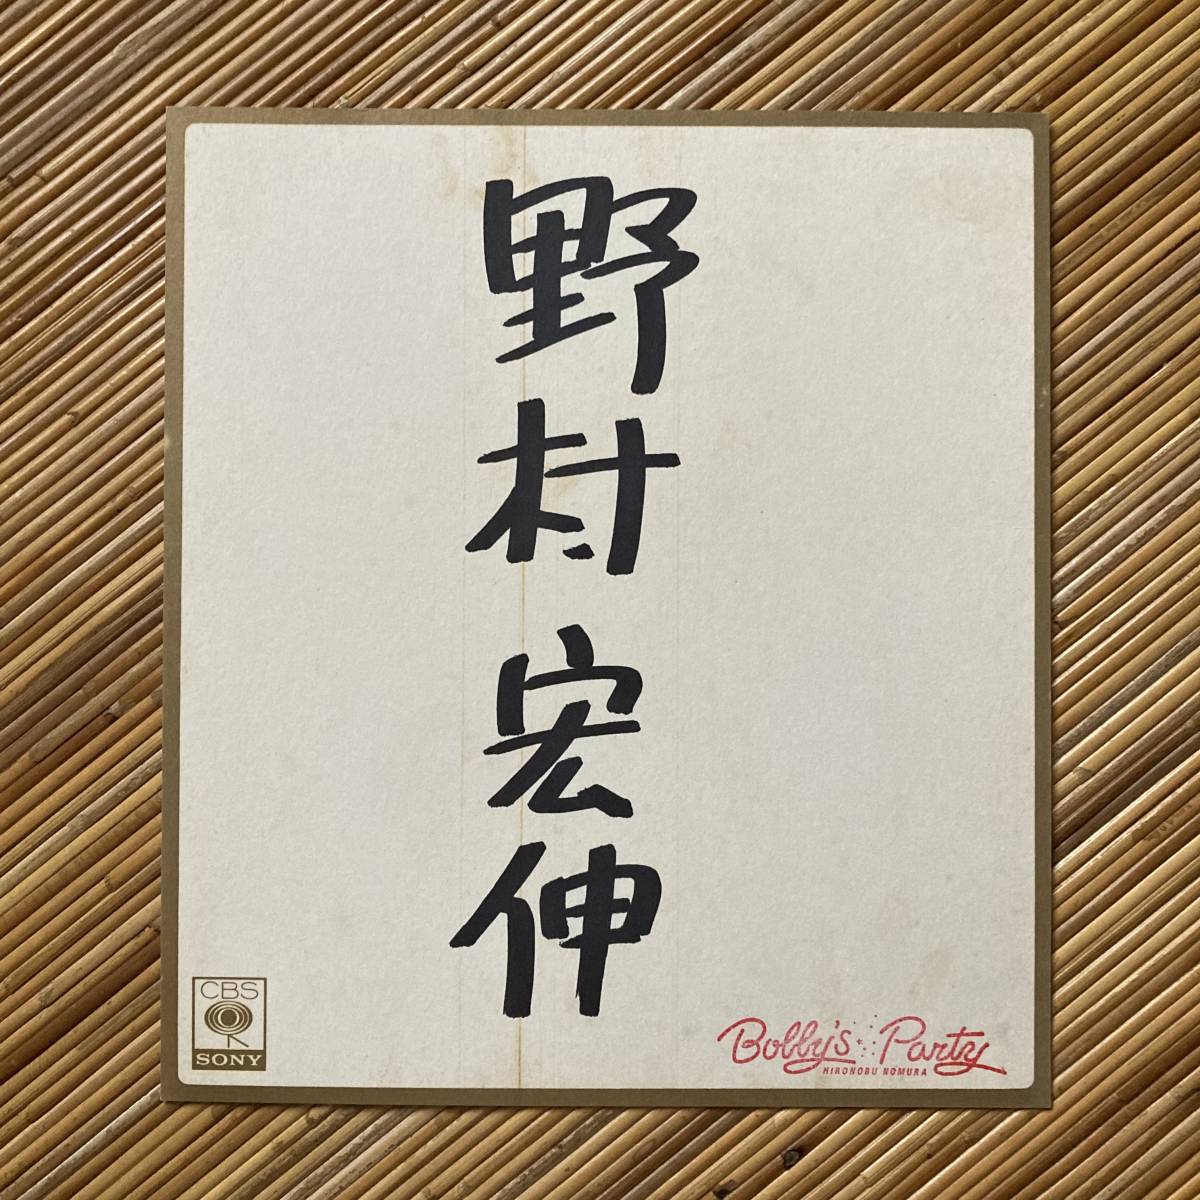 野村宏伸
CBS
SONY
Bobby's Party
HIRONOBU NOMURA